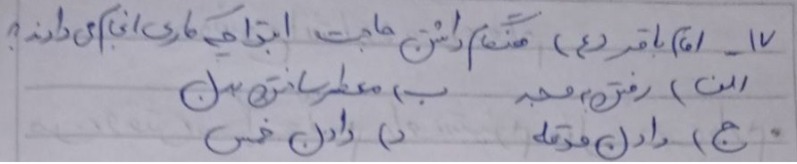 ۱۷- امام باقر (ع) هنگام داشتن حاجت ابتدا چه کاری انجام می دادند؟
الف) رفتن به مسجد ب) معطر ساختن بدن
ج) دادن صدقه د) دادن خمس